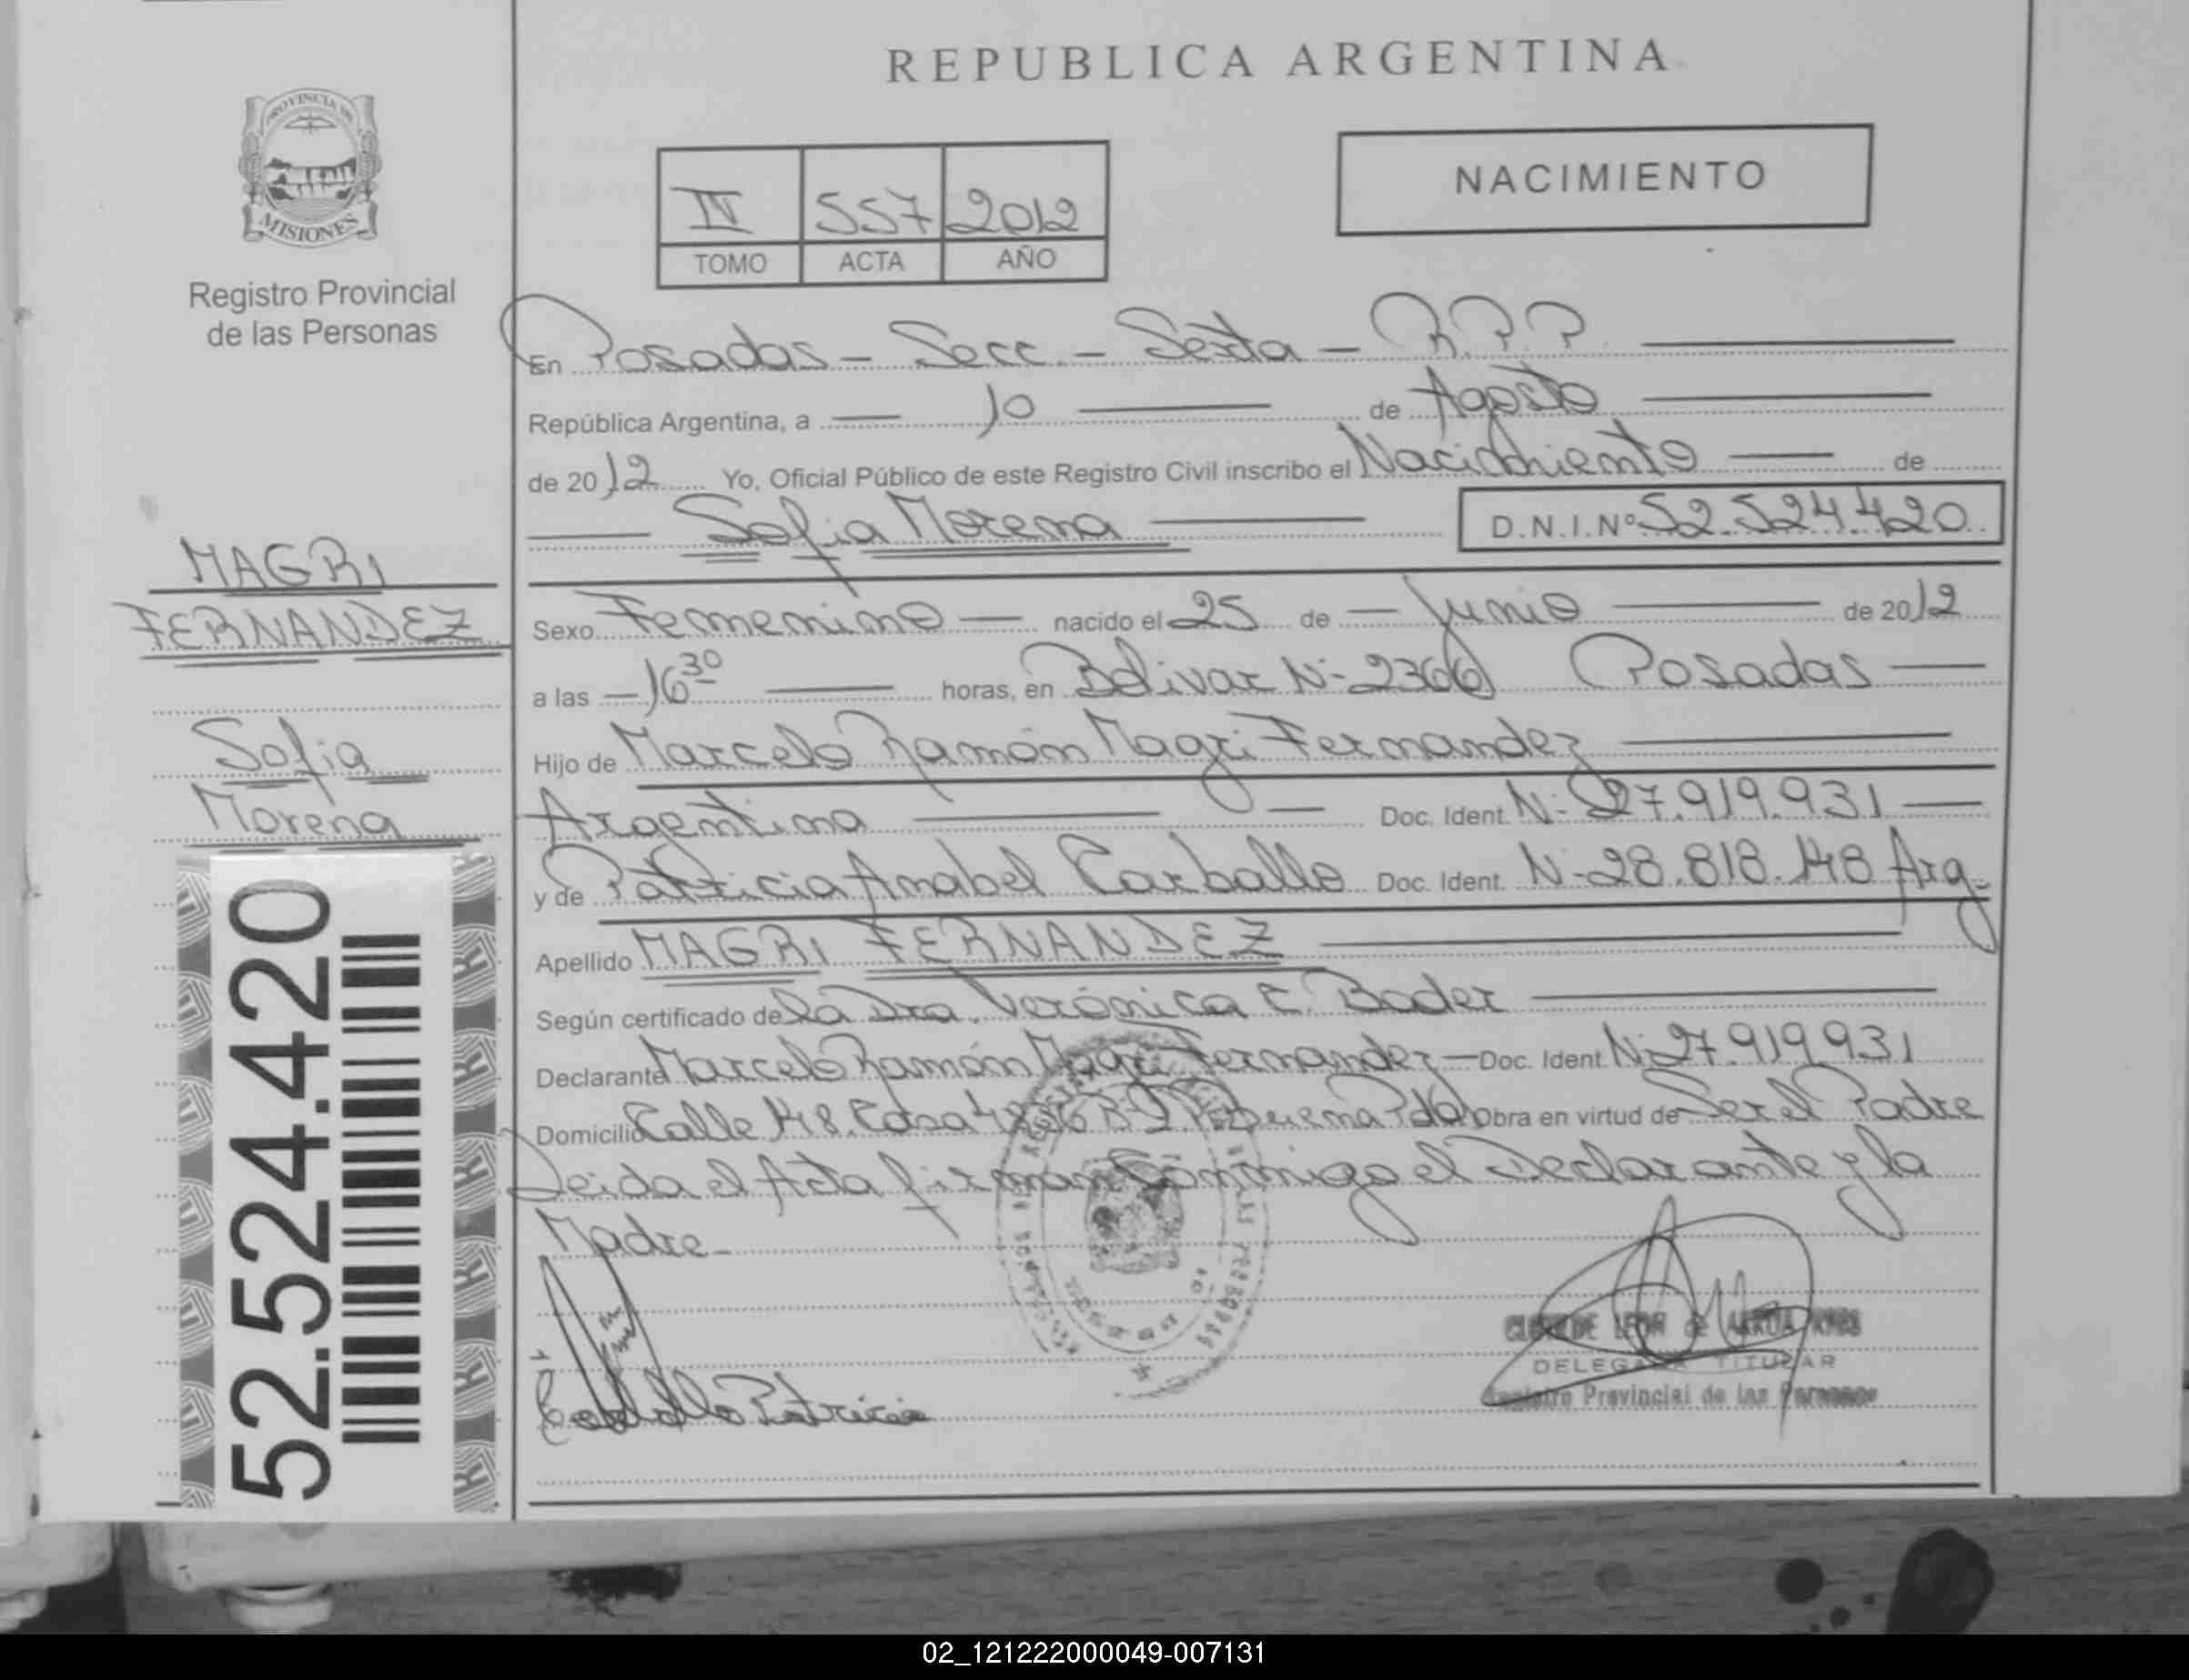 REPUBLICA ARGENTINA
PROVINCIA DE
MISIONES
Registro Provincial
de las Personas
NACIMIENTO
IV 557 2012
TOMO ACTA AÑO
En Posadas - Secc. - Sexta - R.P.P.
República Argentina, a 10 de Agosto
de 2012 Yo, Oficial Público de este Registro Civil inscribo el Nacimiento de
Sofia Morena D.N.I.Nº 52.524.420
MAGRI
FERNANDEZ
Sofia
Morena
52.524.420
Sexo Femenino nacido el 25 de Junio de 2012
a las 16 30 horas, en Bolivar Nº 2366 Posadas
Hijo de Marcelo Ramón Magri Fernandez
Argentina Doc. Ident. Nº 27.919.931
y de Patricia Anabel Carballo Doc. Ident. Nº 28.818.148 Arg.
Apellido MAGRI FERNANDEZ
Según certificado de la Dra. Verónica C. Bader
Declarante Marcelo Ramón Magri Fernandez Doc. Ident. Nº 27.919.931
Domicilio Calle 148 Casa 4836 Bº Obra en virtud de Ser el Padre
Leida el Acta firman Conmigo el Declarante y la
Madre
Carballo Patricia
DELEGADA TITULAR
Registro Provincial de las Personas
02_121222000049-007131